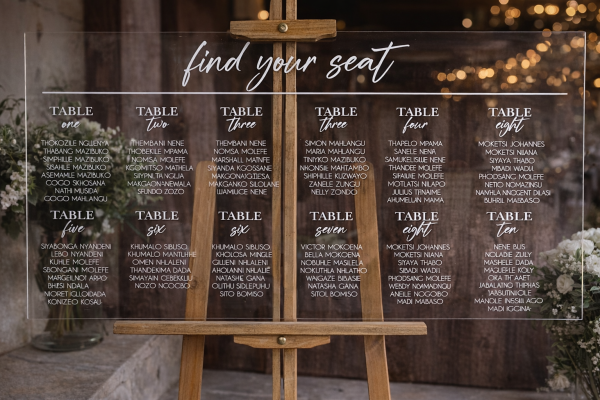 find your seat
TABLE
one
THOKOZILE NGWENYA
THABANG MAZIBUKO
SIMPHILLE MAZIBUKO
SIAHLE MAZIBUKO
ASEMAHLE MAZIBUKO
GOGO SKHOSANA
NATHI MUSDA
GOGO MAHLANGU
TABLE
two
THEMBANI NENE
THOBEKILE MPAMA
NOMSA MOLEFE
MAKGAONANEWALA
SFUNDO ZOZO
TABLE
three
THEMBANI NENE
NOMSA MOLEFE
MARSHALL MATNFE
SIYANDA KGOSSANE
MAKGONAOGIZESA
MAKGANKO SILOLANE
LWAMILICE NENE
TABLE
three
SIMON MAHLANGU
MARIA MAHLANGU
TINIYKO MAZIBUKO
NKONSIE MAHTAMBO
SHIPHILLE KUZWAYO
ZANELE ZUNGU
NELLY ZONDO
TABLE
four
THAPELO MPAMA
SANELE NENA
SAMUKELISIWE NENE
THANDEE MOLEFE
SIFAKILE MOLEFE
MOTLATSI NLAPO
JULIUS TJINAME
AHUMELIAN MAMA
TABLE
eight
MOKETSI JOHANNES
MOKETSI NIANA
SIYAYA THABO
MBADI WADII
PHODSANG MOLEFE
NETIO NOMAZINSU
NANHLA NNOGENT DLASI
BUHRIL MABBASO
TABLE
five
SIYABONGA NYANDENI
LEBO NYANDENI
KUHLE MOLEFE
SBONGANI MOLEFE
MARGELNOI ARMO
BHEISI NDALA
KONIZEO KOSAU
TABLE
six
KHUMALO SIBUSO
KHUMALO MANTUHHE
OMEN NHLALENI
THANDEKIMA DADA
SIMAYAN CEBEKLUU
NOZO NCOCBO
TABLE
six
KHUMALO SIBUSO
KHOLOSA MINGLE
GILIENI NHLALENI
AHOLANNI NNLALIE
NATASHE GANA
OLITHU SIDLEPUHU
SITO BOMISO
TABLE
seven
VICTOR MOKOENA
BELLA MOKOENA
NOBUHLE MASILELA
NOKUTHLA NHLATHO
WANGAZE BIBASIE
NATASHA GANA
SITOL BOMISO
TABLE
eight
MOKETSI JOHANNES
MOKETSI NIANA
SIYAYA THABO
SIBADI WADII
PHODSANG MOLEFE
WENDY NOWMNDNOU
ANEILE NOGOBO
MADI MABASO
TABLE
ten
NENE BUS
NOLADIE ZULY
MASHELE DADA
MAGUEFLE KOLY
OKA TH AAET
JABALATNO THPHAS
MANOLE INSSIII AGO
MADI IGCINA